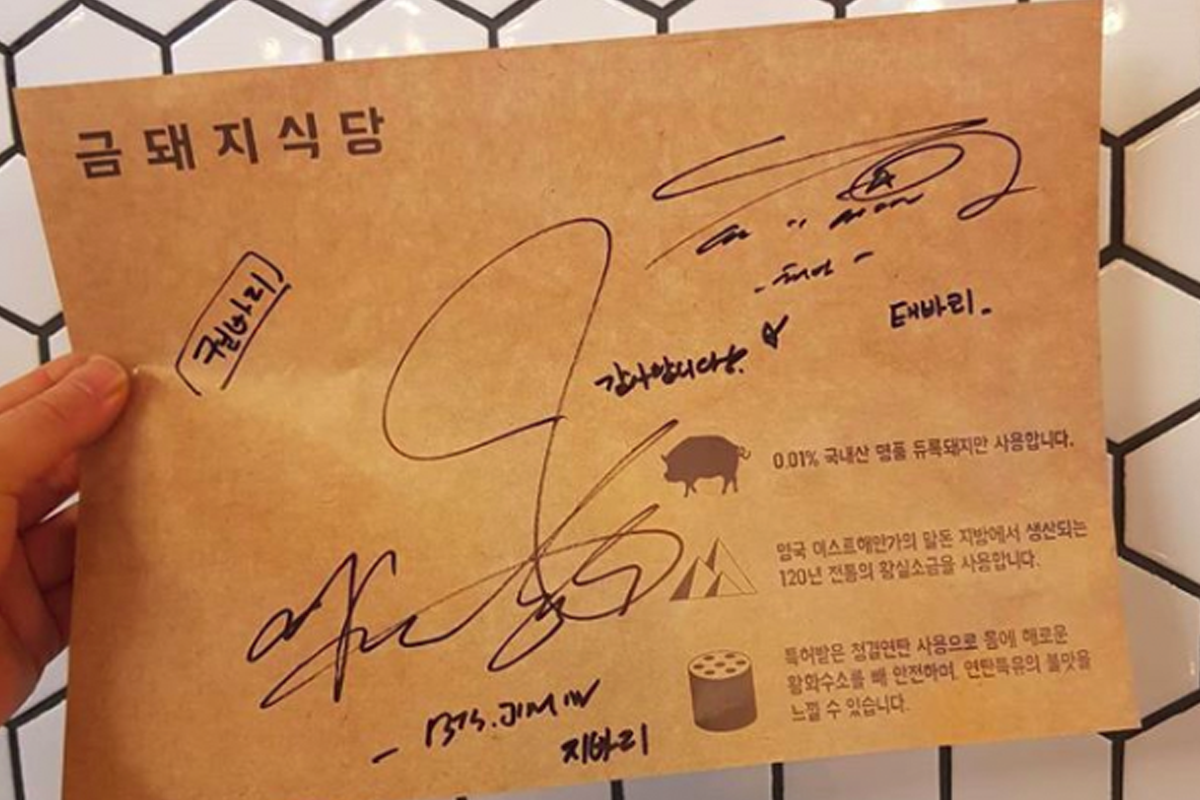 금돼지식당
태바리.
궐바리
감사합니다.
0.01% 국내산 명품 듀록돼지만 사용합니다.
영국 이스트해안가의 말돈 지방에서 생산되는
120년 전통의 황실소금을 사용합니다.
특허받은 청결연탄 사용으로 몸에 해로운
황화수소를 빼 안전하며, 연탄특유의 불맛을
느낄 수 있습니다.
- BTS. JIMIN
지바리